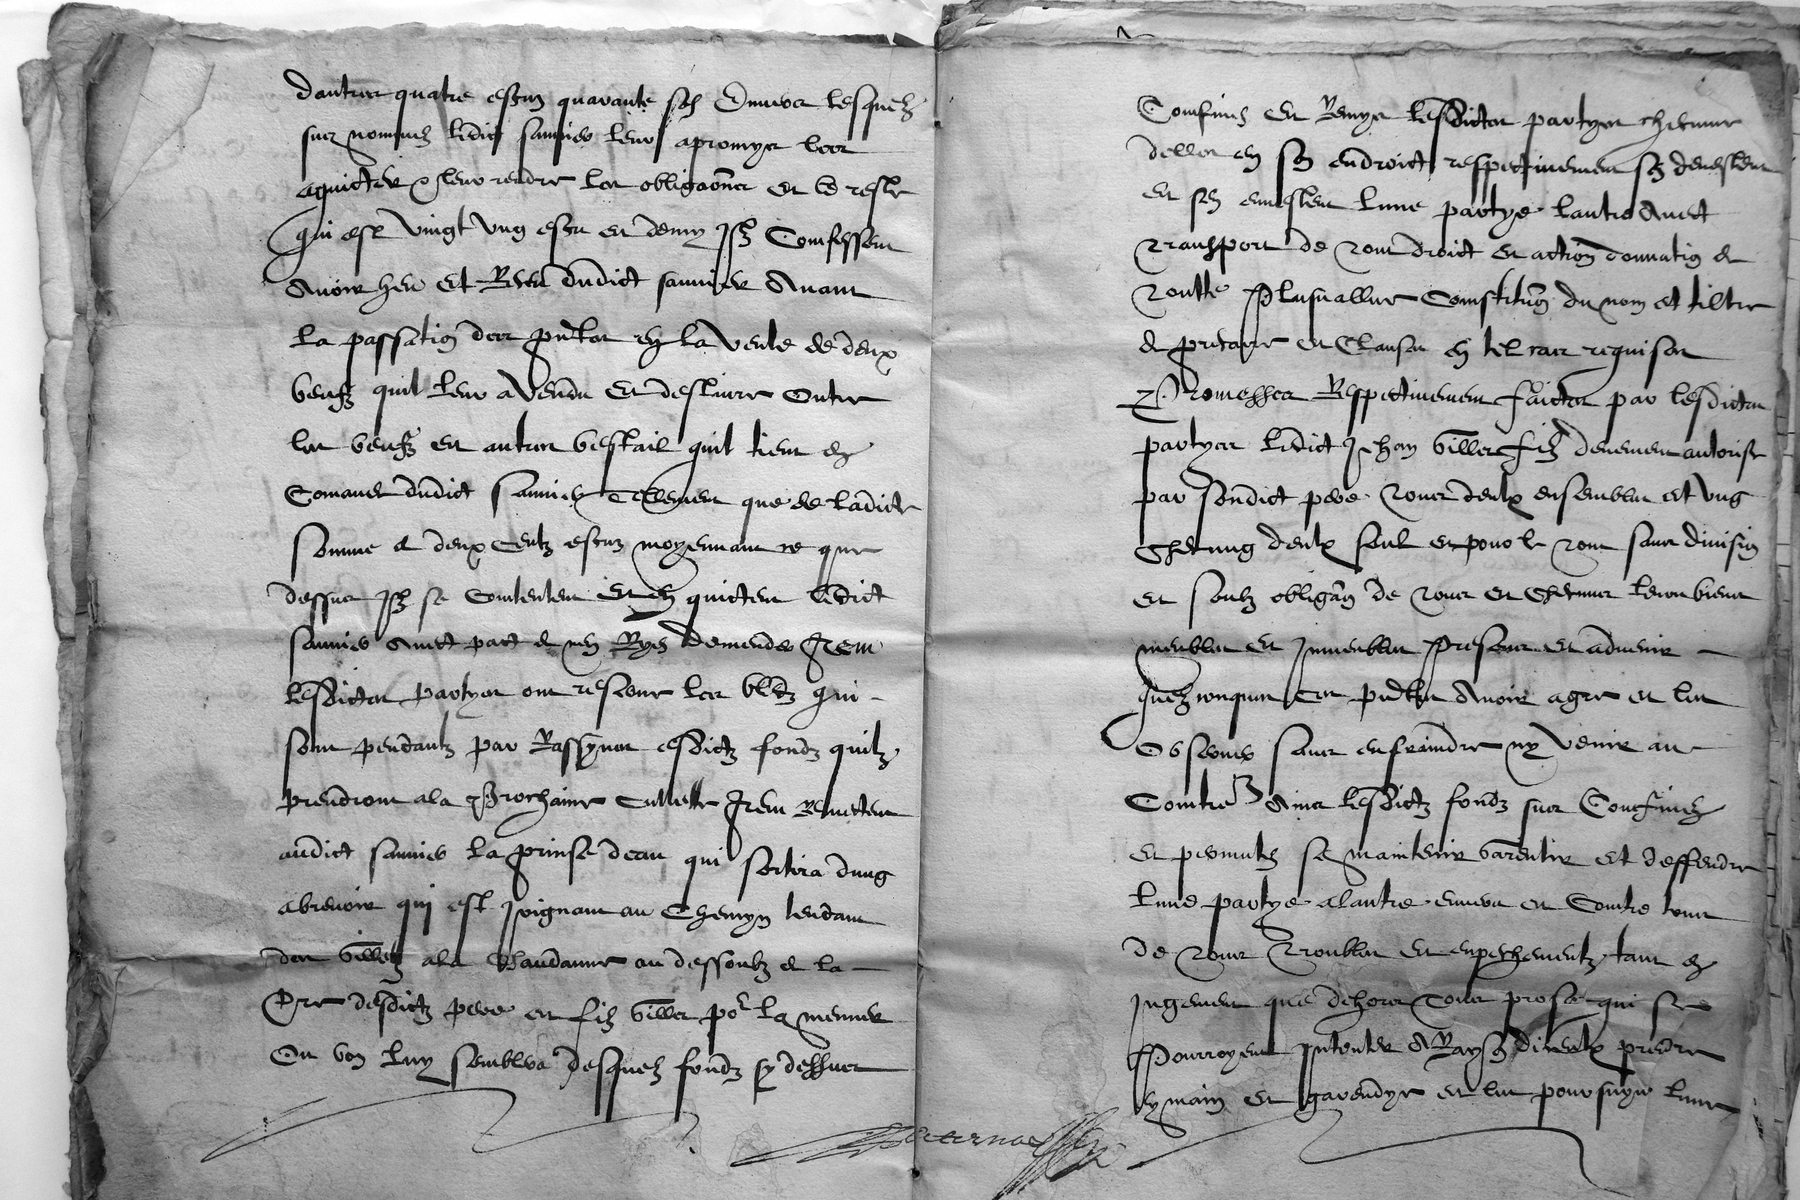 dautres quatre escus quarante solz Enuers lesquelz
sus nommez ledict saunier leur a promys les
aquicter & leur rendre les obliga͠ons et le reste
qui est vingt ung escu et demy Ilz Confessent
Auoir heu et Receu dudict saunier Auant
la passation des p̃ntes en la vente de deux
beufz quil leur a vendu et desliure Outre
les beufz et autres bestail quil tient en
Comande dudict saunier Tellement que de ladicte
somme de deux Centz escuz moyennant ce que
dessus Ilz se Contentent et en quictent ledict
saunier Auec pact de nen Ryen demender Item
lesdictes partyes ont reserue les bledz qui
sont pendantz par Rassynes esdictz fondz quilz
prendront a la Prochaine Cullette Item Remettent
audict saunier la prinse deau qui sortira dung
abreuoir qui est Joignant au Chemyn tendant
des Villetz a la au dessoubz de la
desdictz pere et filz Villet po{r} la menner
Ou bon luy semblera desquelz fondz sy dessus
Confines et Remys lesdictes partyes chescune
delles en son endroict respectiuement sen deuestent
et sen enuestent lune partye lautre Auec
transport de tout droict et action donnation de
toutte Plusuallue Constitu͠on du nom et tiltre
de precaire et Clauses en tel cas requises
Promesses Respectiuement faictes par lesdictes
partyes ledict Jehan Villet filz deuement autorise
par sondict pere tous deulx ensembles et ung
Chescung deulx seul et pour le tout sans diuision
et soubz obliga͠on de tous et Chescuns leurs biens
meubles et Inmeubles Presens et aduenir
quelzconques Ces p̃ntes Auoir agre et les
Obseruer sans enfraindre ny venir au
Contre Ains lesdictz fondz sus Confinez
et permutez se maintenir garentir et deffendre
lune partye a lautre enuers et Contre tous
de tous troubles et enpechementz tant en
Jugement que dehors Tous proses qui se
Pourroyent Intenter A Rayson diceulx prendre
en main et garendye et les poursuyure lune